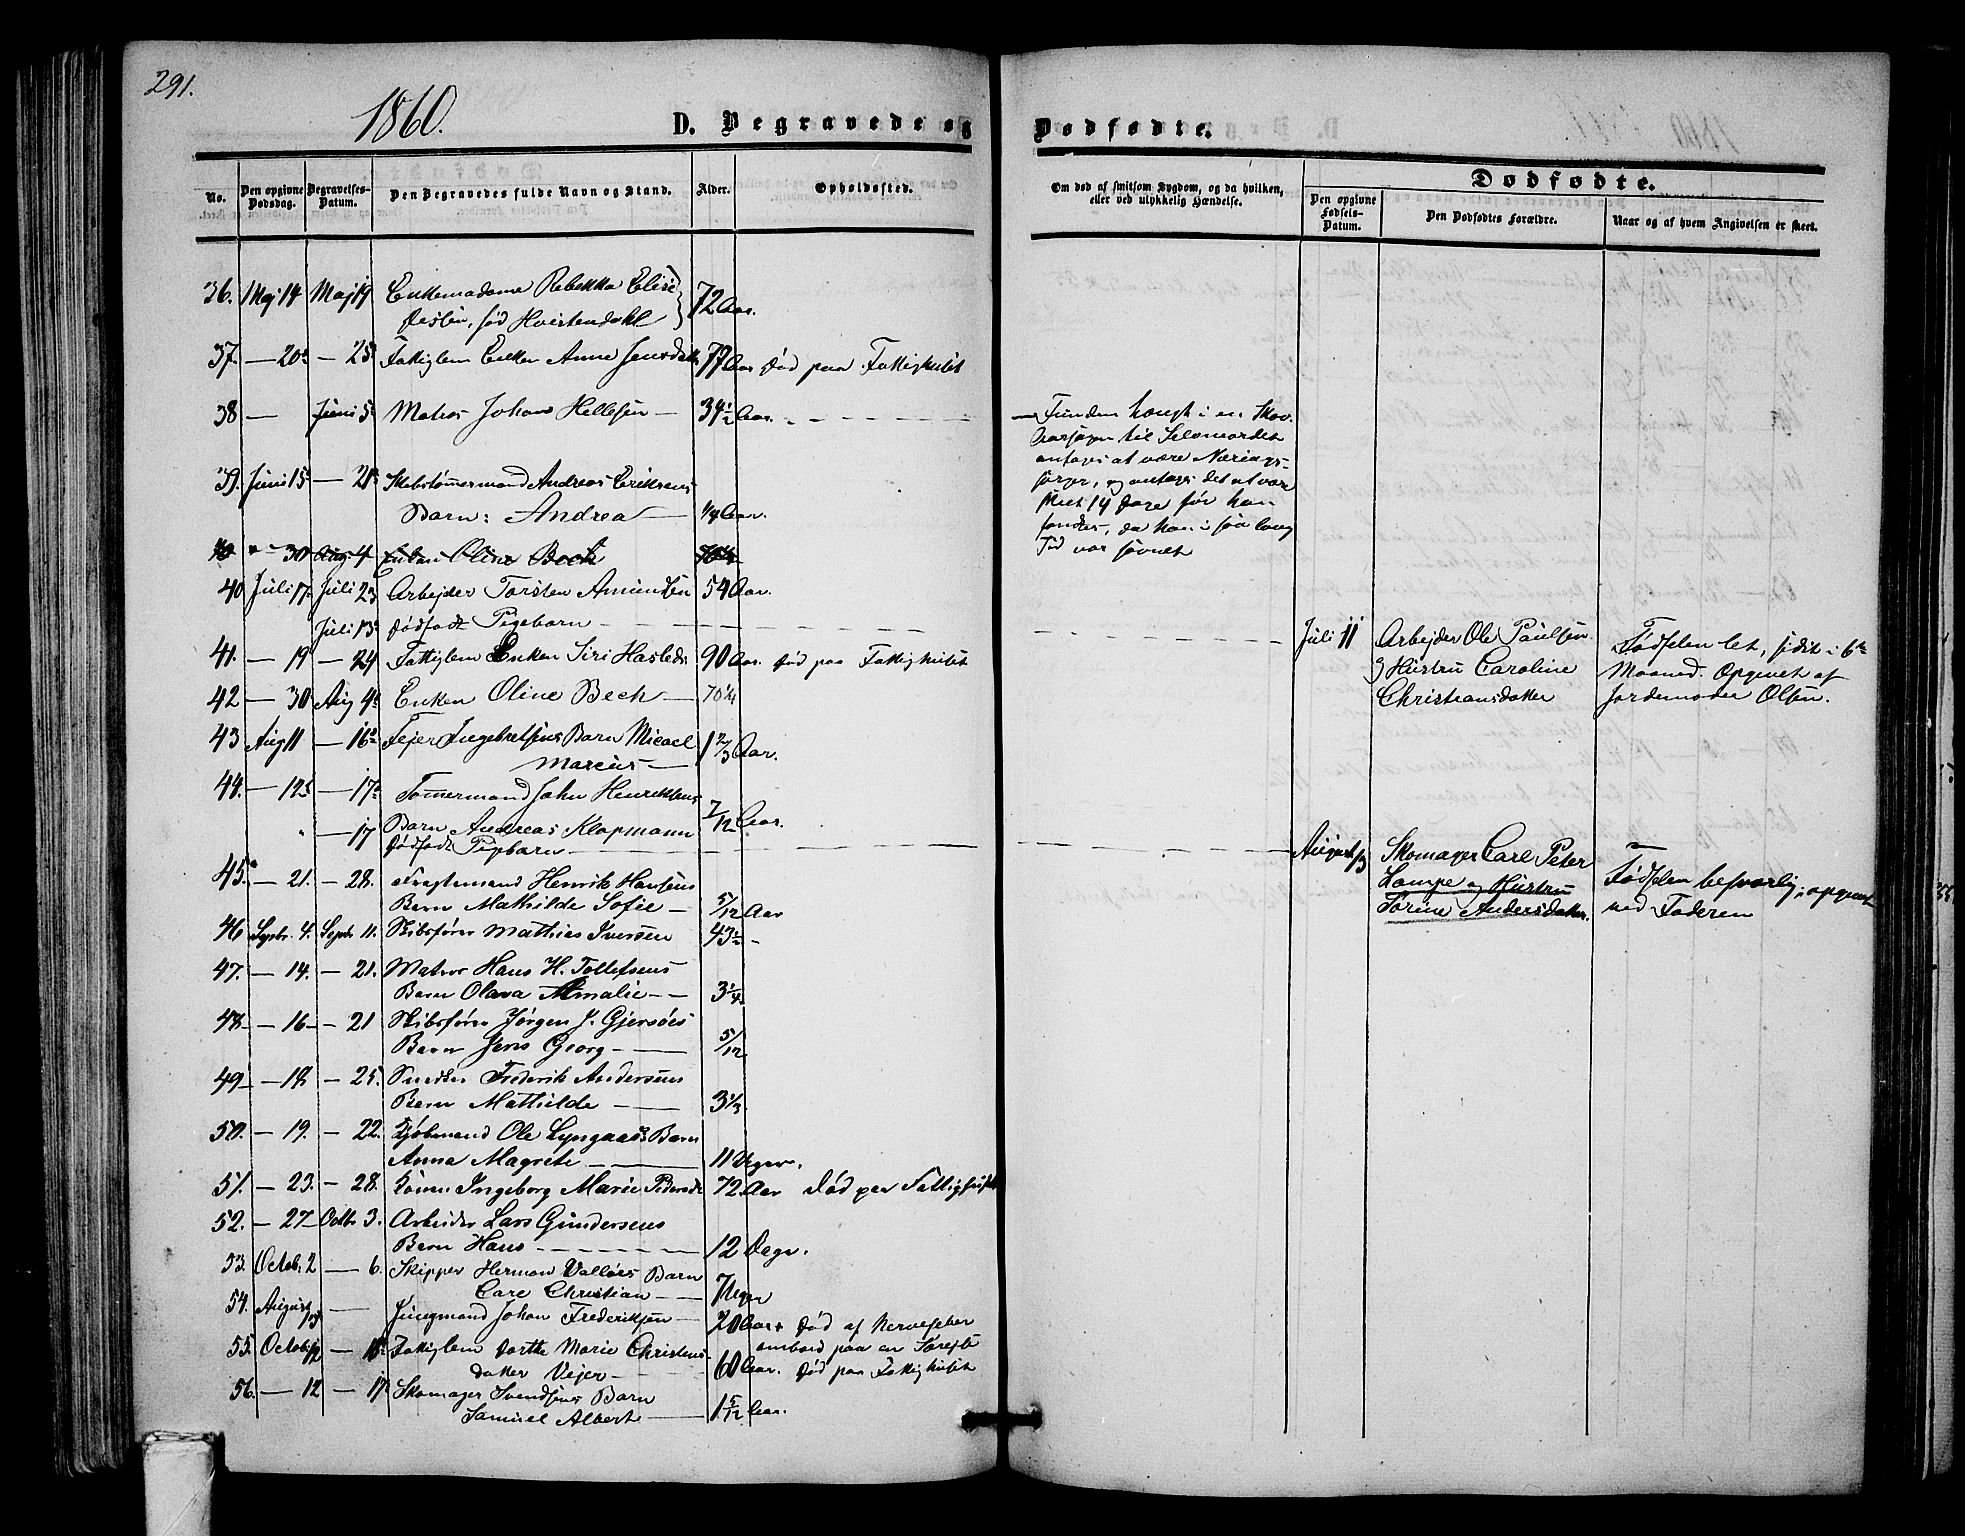 291.
1860.
D. Begravede og
Dødfødte.
No.
Den opgivne Dødsdag.
Begravelses-Datum.
Den Begravedes fulde Navn og Stand.
Alder.
Opholdssted.
Om død af smitsom Sygdom, og da hvilken, eller ved ulykkelig Hændelse.
Dødfødte.
Den opgivne Fødsels-Datum.
Den Dødfødtes Forældre.
Naar og af hvem Angivelsen er skeet.
36. Maj 14 Maj 19 Enkemadame Rebekka Elise
født Hvistendahl 72 Aar.
37. — 20 — 25 Fattiglem Enken Anne Jensdatter 77 Aar død paa Fattighuset
38 — Juni 5 Matros Johan Hellesen — 34½ Aar. — Funden hængt i en Skov.
Aarsagen til Selvmordet
antages at være Nærings-
sorger, og antages det at være
skeet 14 Dage før han
fandtes, da han i saa lang
Tid var savnet
39. Juni 15 — 21 Skibstømmermand Andreas Eriksens
Barn: Andrea — ¼ Aar.
40 " 30 Aug 4 Enken Oline Bech 70¼
40 Juli 17 Juli 23 Arbejder Torsten Amundsen 54 Aar.
Juli 13 dødfødt Pigebarn — Juli 11 Arbejder Ole Paulsen
og Hustru Caroline
Christiansdatter
Fødselen let, sidst i 6te
Maaned. Opgivet af
Jordemoder Olsen.
41. — 19 — 24 Fattiglem Enken Siri Hasleds 90 Aar. død paa Fattighuset
42 — 30 Aug 4 Enken Oline Bech — 70¼
43 Aug 11 — 16 Fejer Ingebretsens Barn Micael
Marcus — 1 2/3 Aar.
44. — 12 — 17 Tømmermand John Henriksens
Barn Andreas Klopmann 7/12 Aar.
" — 17 dødfødt Pigebarn — August 13 Skomager Carl Peter
Lampe og Hustru
Sørine Andersdatter.
Fødselen besværlig; opgivet
ved Faderen
45. — 21. — 28. Fragtemand Henrik Hansens
Barn Mathilde Sofie — 5/12 Aar
46 Septbr. 4. Septbr 11. Skibsfører Mathias Iversen 43½ -
47. — 14. — 21. Matros Hans H. Tollefsens
Barn Olava Amalie — 3¼
48. — 16 — 21 Skibsfører Jørgen J. Gjersøes
Barn Jens Georg — 5/12
49 — 18 — 25. Smeden Frederik Andersens
Barn Mathilde — 3⅓
50. — 19. — 22. Kjøbmand Ole Lyngaas's Barn
Anna Magrete — 11 Uger.
51. — 23. — 28. Konen Ingeborg Marie Pedersdt 72. Aar død paa Fattighuset
52. — 27 Octb. 3. Arbeider Lars Gundersens
Barn Hans — 12 Dage.
53. Octob. 2 — 6. Skipper Herman Valløes Barn
Carl Christian — 7 Uger
54. August — Jungmand Johan Frederiksen — 20 Aar død af Nervefeber
ombord paa en Sørejse
55. October 12 — 18 Fattiglem Dorthe Marie Christens-
datter Vejer — 60 Aar. død paa Fattighuset
56. — 12 — 17 Skomager Svendsens Barn
Samuel Albert — 1 5/12 Aar.